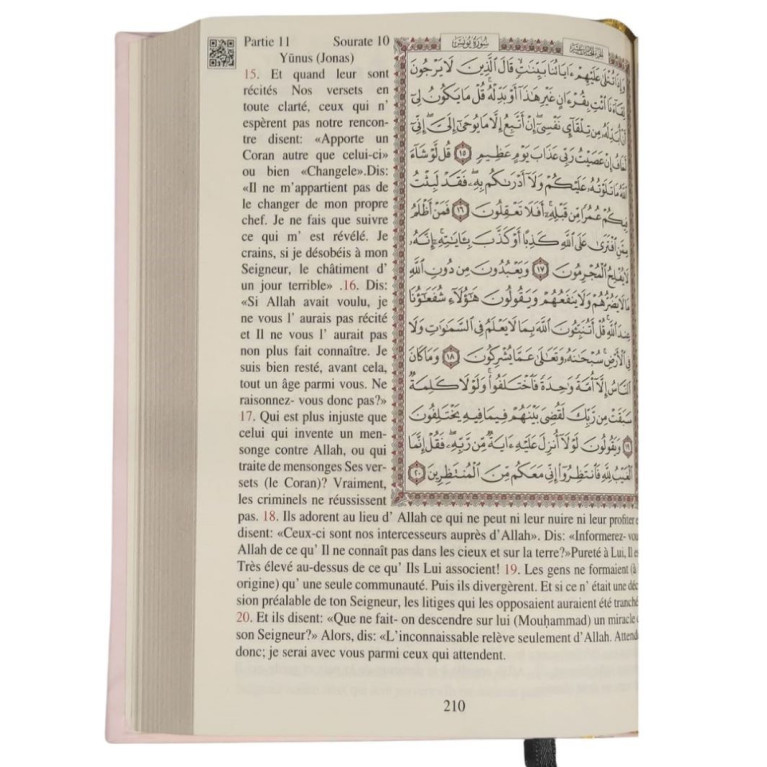 Partie 11 Sourate 10
Yūnus (Jonas)
15. Et quand leur sont
récités Nos versets en
toute clarté, ceux qui n'
espèrent pas notre rencon-
tre disent: «Apporte un
Coran autre que celui-ci»
ou bien «Changele».Dis:
«Il ne m'appartient pas de
le changer de mon propre
chef. Je ne fais que suivre
ce qui m' est révélé. Je
crains, si je désobéis à mon
Seigneur, le châtiment d'
un jour terrible» .16. Dis:
«Si Allah avait voulu, je
ne vous l' aurais pas récité
et Il ne vous l' aurait pas
non plus fait connaître. Je
suis bien resté, avant cela,
tout un âge parmi vous. Ne
raisonnez- vous donc pas?»
17. Qui est plus injuste que
celui qui invente un men-
songe contre Allah, ou qui
traite de mensonges Ses ver-
sets (le Coran)? Vraiment,
les criminels ne réussissent
سُورَةُ يُونُسَ
وَإِذَا تُتْلَىٰ عَلَيْهِمْ ءَايَاتُنَا بَيِّنَٰتٍ قَالَ ٱلَّذِينَ لَا يَرْجُونَ
لِقَآءَنَا ٱئْتِ بِقُرْءَانٍ غَيْرِ هَٰذَآ أَوْ بَدِّلْهُ قُلْ مَا يَكُونُ لِىٓ
أَنْ أُبَدِّلَهُۥ مِن تِلْقَآئِ نَفْسِىٓ إِنْ أَتَّبِعُ إِلَّا مَا يُوحَىٰٓ إِلَىَّ إِنِّىٓ
أَخَافُ إِنْ عَصَيْتُ رَبِّى عَذَابَ يَوْمٍ عَظِيمٍ ١٥ قُل لَّوْ شَآءَ
ٱللَّهُ مَا تَلَوْتُهُۥ عَلَيْكُمْ وَلَآ أَدْرَىٰكُم بِهِۦ فَقَدْ لَبِثْتُ
فِيكُمْ عُمُرًا مِّن قَبْلِهِۦٓ أَفَلَا تَعْقِلُونَ ١٦ فَمَنْ أَظْلَمُ
مِمَّنِ ٱفْتَرَىٰ عَلَى ٱللَّهِ كَذِبًا أَوْ كَذَّبَ بِـَٔايَٰتِهِۦٓ إِنَّهُۥ
لَا يُفْلِحُ ٱلْمُجْرِمُونَ ١٧ وَيَعْبُدُونَ مِن دُونِ ٱللَّهِ
مَا لَا يَضُرُّهُمْ وَلَا يَنفَعُهُمْ وَيَقُولُونَ هَٰٓؤُلَآءِ شُفَعَٰٓؤُنَا
عِندَ ٱللَّهِ قُلْ أَتُنَبِّـُٔونَ ٱللَّهَ بِمَا لَا يَعْلَمُ فِى ٱلسَّمَٰوَٰتِ وَلَا
فِى ٱلْأَرْضِ سُبْحَٰنَهُۥ وَتَعَٰلَىٰ عَمَّا يُشْرِكُونَ ١٨ وَمَا كَانَ
ٱلنَّاسُ إِلَّآ أُمَّةً وَٰحِدَةً فَٱخْتَلَفُوا۟ وَلَوْلَا كَلِمَةٌ
سَبَقَتْ مِن رَّبِّكَ لَقُضِىَ بَيْنَهُمْ فِيمَا فِيهِ يَخْتَلِفُونَ
١٩ وَيَقُولُونَ لَوْلَآ أُنزِلَ عَلَيْهِ ءَايَةٌ مِّن رَّبِّهِۦ فَقُلْ إِنَّمَا
ٱلْغَيْبُ لِلَّهِ فَٱنتَظِرُوٓا۟ إِنِّى مَعَكُم مِّنَ ٱلْمُنتَظِرِينَ ٢٠
pas. 18. Ils adorent au lieu d' Allah ce qui ne peut ni leur nuire ni leur profiter e
disent: «Ceux-ci sont nos intercesseurs auprès d'Allah». Dis: «Informerez- vou
Allah de ce qu' Il ne connaît pas dans les cieux et sur la terre?»Pureté à Lui, Il e
Très élevé au-dessus de ce qu' Ils Lui associent! 19. Les gens ne formaient (à
origine) qu' une seule communauté. Puis ils divergèrent. Et si ce n' était une déc
sion préalable de ton Seigneur, les litiges qui les opposaient auraient été tranché
20. Et ils disent: «Que ne fait- on descendre sur lui (Mouḥammad) un miracle d
son Seigneur?» Alors, dis: «L'inconnaissable relève seulement d'Allah. Attend
donc; je serai avec vous parmi ceux qui attendent.
210